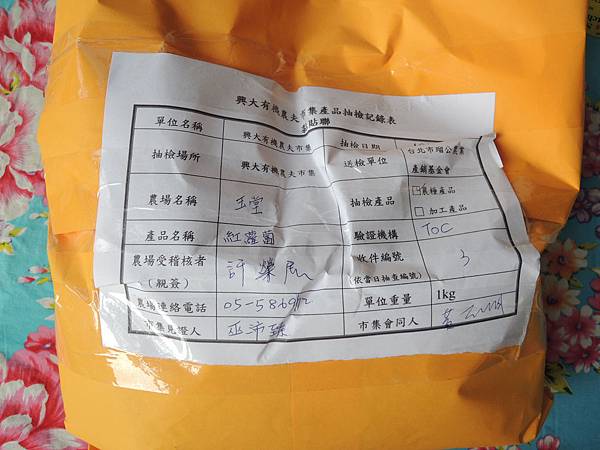 興大有機農夫市集產品抽檢記錄表
黏貼聯
單位名稱 興大有機農夫市集 抽檢日期
抽檢場所 興大有機農夫市集 送檢單位 台北市瑠公農業產銷基金會
農場名稱 玉堂 抽檢產品 農糧產品
加工產品
產品名稱 紅蘿蔔 驗證機構 TOC
農場受稽核者 許榮 收件編號 3
(親簽) (依當日抽查編號)
農場連絡電話 單位重量 1kg
市集見證人 巫沛臻 市集會同人